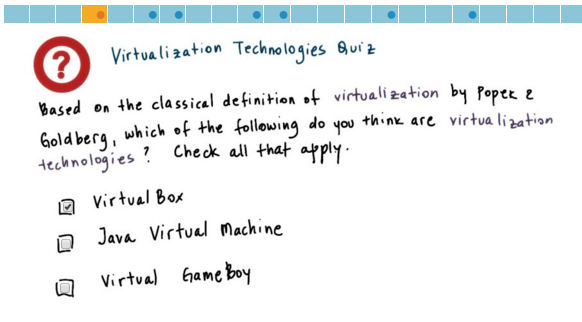 ?
Virtualization Technologies Quiz
Based on the classical definition of virtualization by Popek &
Goldberg, which of the following do you think are virtualization
technologies? Check all that apply.
Virtual Box
Java Virtual Machine
Virtual GameBoy